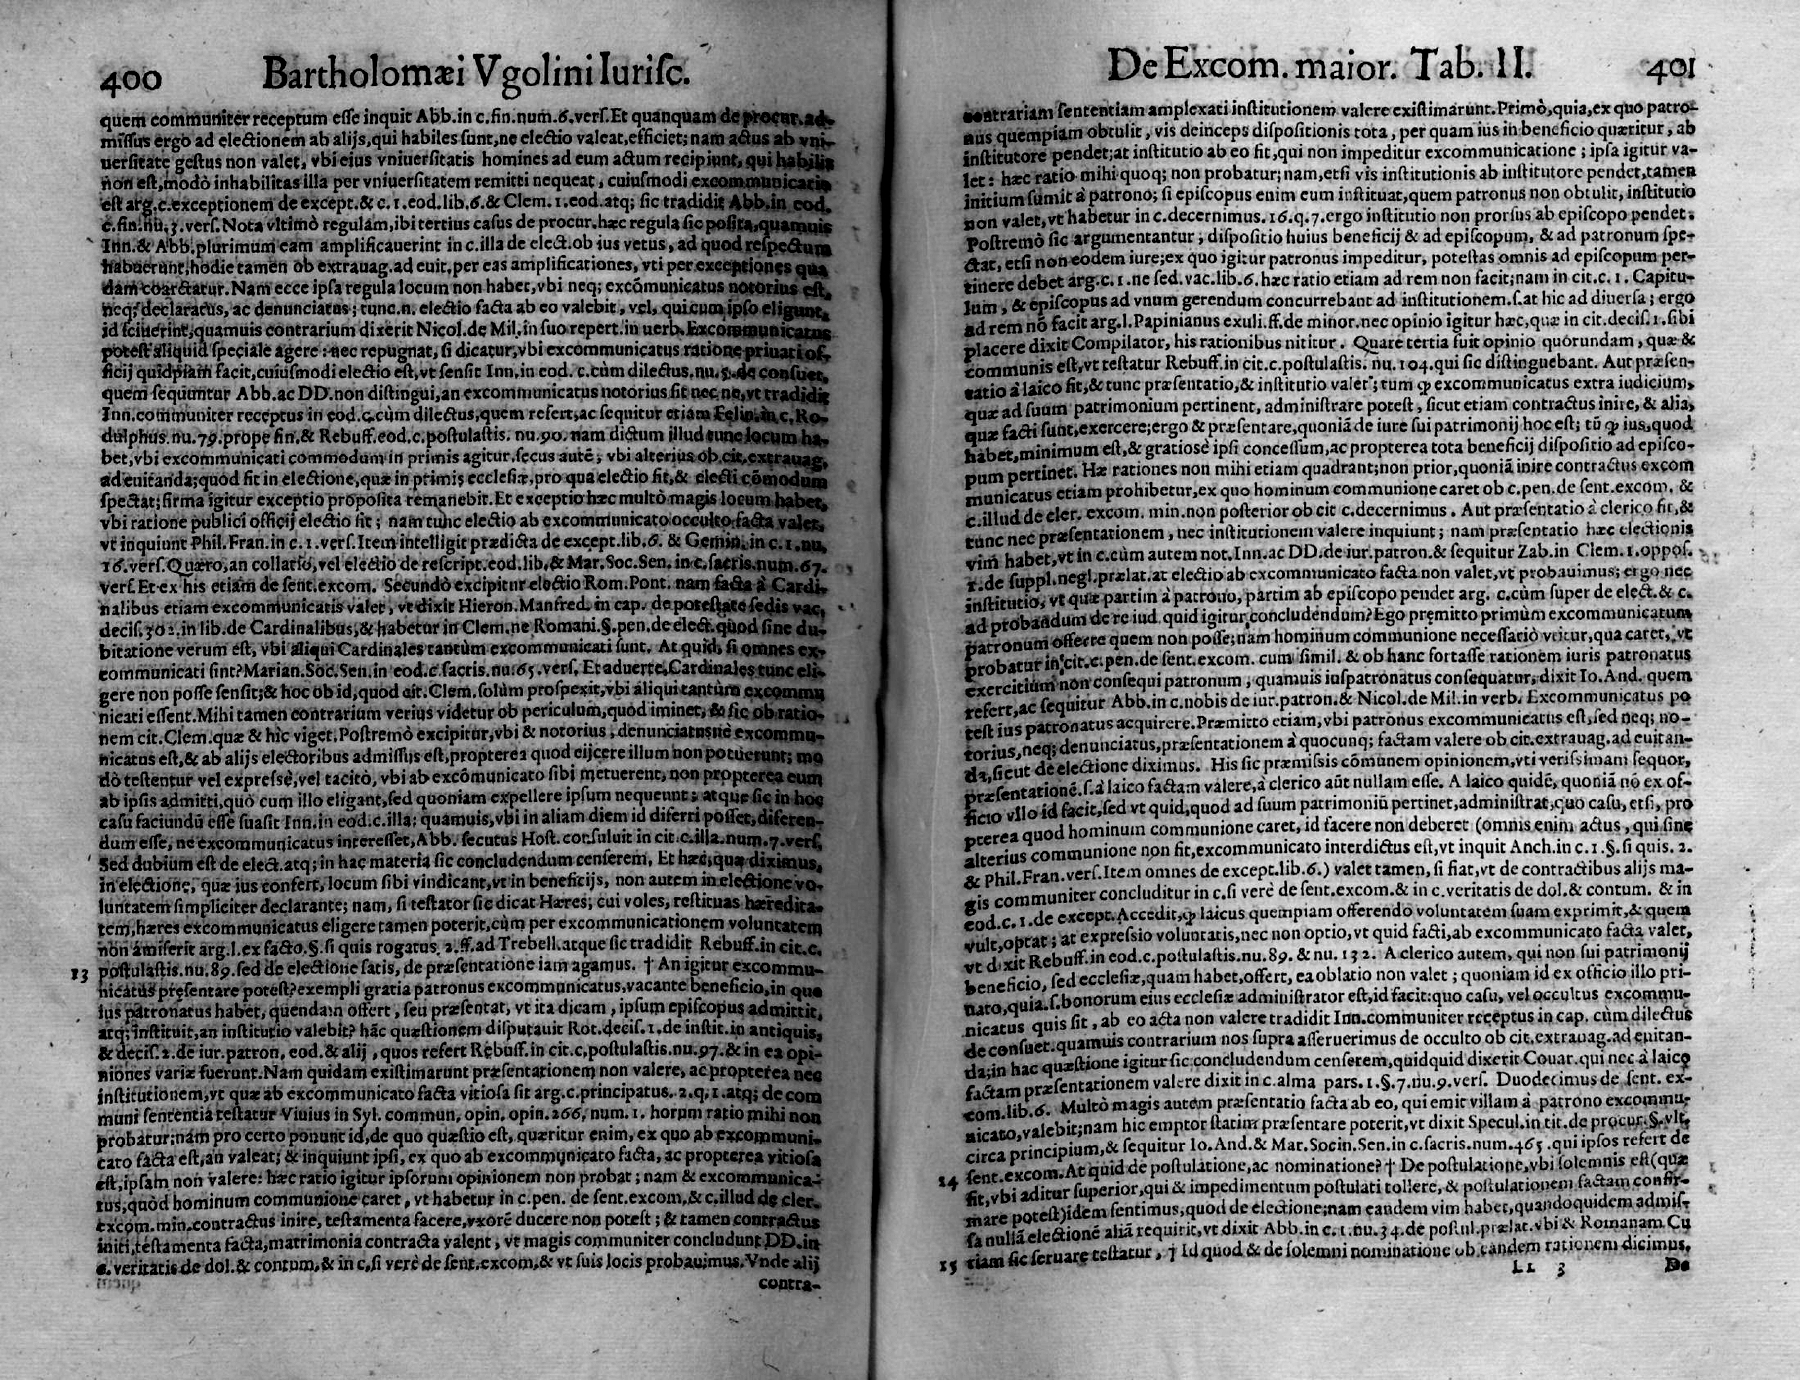 400 Bartholomæi Vgolini Iurisc.
quem communiter receptum esse inquit Abb. in c. fin. num. 6. vers. Et quanquam de procur. ad-
missus ergo ad electionem ab alijs, qui habiles sunt, ne electio valeat, efficiet; nam actus ab vni-
uersitate gestus non valet, vbi eius vniuersitatis homines ad eum actum recipiunt, qui habilis
non est, modò inhabilitas illa per vniuersitatem remitti nequeat, cuiusmodi excommunicatio
est arg. c. exceptionem de except. & c. 1. eod. lib. 6. & Clem. 1. eod. atq; sic tradidit Abb. in eod.
c. fin. nu. 3. vers. Nota vltimò regulam, ibi tertius casus de procur. hæc regula sic posita, quamuis
Inn. & Abb. plurimum eam amplificauerint in c. illa de elect. ob ius vetus, ad quod respectum
habuerunt, hodie tamen ob extrauag. ad euit. per eas amplificationes, vti per exceptiones qua
dam coarctatur. Nam ecce ipsa regula locum non habet, vbi neq; excõmunicatus notorius est,
neq; declaratus, ac denunciatus; tunc. n. electio facta ab eo valebit, vel, qui cum ipso eligunt,
id sciuerint, quamuis contrarium dixerit Nicol. de Mil. in suo repert. in uerb. Excommunicatus
potest aliquid speciale agere: nec repugnat, si dicatur, vbi excommunicatus ratione priuati of-
ficij quidpiam facit, cuiusmodi electio est, vt sensit Inn. in eod. c. cùm dilectus. nu. 5. de consuet.
quem sequuntur Abb. ac DD. non distingui, an excommunicatus notorius sit nec ne, vt tradidit
Inn. communiter receptus in eod. c. cùm dilectus, quem refert, ac sequitur etiam Felin. in c. Ro-
dulphus. nu. 79. prope fin. & Rebuff. eod. c. postulastis. nu. 90. nam dictum illud tunc locum ha-
bet, vbi excommunicati commodum in primis agitur, secus autẽ, vbi alterius ob cit. extrauag.
ad euitanda; quod fit in electione, quæ in primis ecclesiæ, pro qua electio fit, & electi cõmodum
spectat; firma igitur exceptio proposita remanebit. Et exceptio hæc multò magis locum habet,
vbi ratione publici officij electio fit; nam tunc electio ab excommunicato occulto facta valet,
vt inquiunt Phil. Fran. in c. 1. vers. Item intelligit prædicta de except. lib. 6. & Gemin. in c. 1. nu.
16. vers. Quæro, an collatio, vel electio de rescript. eod. lib. & Mar. Soc. Sen. in c. sacris. num. 67.
vers. Et ex his etiam de sent. excom. Secundò excipitur electio Rom. Pont. nam facta à Cardi-
nalibus etiam excommunicatis valet, vt dixit Hieron. Manfred. in cap. de potestate sedis vac.
decis. 302. in lib. de Cardinalibus, & habetur in Clem. ne Romani. §. pen. de elect. quòd sine du-
bitatione verum est, vbi aliqui Cardinales tantùm excommunicati sunt. At quid, si omnes ex-
communicati sint? Marian. Soc. Sen. in eod. c. sacris. nu. 65. vers. Et aduerte, Cardinales tunc eli-
gere non posse sensit; & hoc ob id, quod cit. Clem. solùm prospexit, vbi aliqui tantùm excommu
nicati essent. Mihi tamen contrarium verius videtur ob periculum, quod iminet, & sic ob ratio-
nem cit. Clem. quæ & hic viget. Postremò excipitur, vbi & notorius, denunciatusuè excommu-
nicatus est, & ab alijs electoribus admissus est, propterea quod eijcere illum non potuerunt; mo
dò testentur vel expressè, vel tacitò, vbi ab excõmunicato sibi metuerent, non propterea eum
ab ipsis admitti, quò cum illo eligant, sed quoniam expellere ipsum nequeunt; atque sic in hoc
casu faciundũ esse suasit Inn. in eod. c. illa; quamuis, vbi in aliam diem id differri posset, diferen-
dum esse, ne excommunicatus interesset, Abb. secutus Host. consuluit in cit. c. illa. num. 7. vers.
Sed dubium est de elect. atq; in hac materia sic concludendum censerem. Et hæc, quæ diximus,
in electione, quæ ius confert, locum sibi vindicant, vt in beneficijs, non autem in electione vo-
luntatem simpliciter declarante; nam, si testator sic dicat Hæres; cui voles, restituas hæredita-
tem, hæres excommunicatus eligere tamen poterit, cùm per excommunicationem voluntatem
non amiserit arg. l. ex facto. §. si quis rogatus. 2. ff. ad Trebell. atque sic tradidit Rebuff. in cit. c.
13 postulastis. nu. 89. sed de electione satis, de præsentatione iam agamus. † An igitur excommu-
nicatus præsentare potest? exempli gratia patronus excommunicatus, vacante beneficio, in quo
ius patronatus habet, quendam offert, seu præsentat, vt ita dicam, ipsum episcopus admittit,
atq; instituit, an institutio valebit? hãc quæstionem disputauit Rot. decis. 1. de instit. in antiquis,
& decis. 2. de iur. patron. eod. & alij, quos refert Rebuff. in cit. c. postulastis. nu. 97. & in ea opi-
niones variæ fuerunt. Nam quidam existimarunt præsentationem non valere, ac propterea nec
institutionem, vt quæ ab excommunicato facta vitiosa sit arg. c. principatus. 2. q. 1. atq; de com
muni sententia testatur Viuius in Syl. commun. opin. opin. 266. num. 1. horum ratio mihi non
probatur; nam pro certo ponunt id, de quo quæstio est, quæritur enim, ex quo ab excommuni-
cato facta est, an valeat; & inquiunt ipsi, ex quo ab excommunicato facta, ac propterea vitiosa
est, ipsam non valere: hæc ratio igitur ipsorum opinionem non probat; nam & excommunica-
tus, quòd hominum communione caret, vt habetur in c. pen. de sent. excom. & c. illud de cler.
excom. min. contractus inire, testamenta facere, vxorẽ ducere non potest; & tamen contractus
initi, testamenta facta, matrimonia contracta valent, vt magis communiter concludunt DD. in
c. veritatis de dol. & contum. & in c. si verè de sent. excom. & vt suis locis probauimus. Vnde alij
contra-
De Excom. maior. Tab. II. 401
contrariam sententiam amplexati institutionem valere existimarunt. Primò, quia, ex quo patro-
nus quempiam obtulit, vis deinceps dispositionis tota, per quam ius in beneficio quæritur, ab
institutore pendet; at institutio ab eo fit, qui non impeditur excommunicatione; ipsa igitur va-
let: hæc ratio mihi quoq; non probatur; nam, etsi vis institutionis ab institutore pendet, tamen
initium sumit à patrono; si episcopus enim eum instituat, quem patronus non obtulit, institutio
non valet, vt habetur in c. decernimus. 16. q. 7. ergo institutio non prorsus ab episcopo pendet.
Postremò sic argumentantur, dispositio huius beneficij & ad episcopum, & ad patronum spe-
ctat, etsi non eodem iure; ex quo igitur patronus impeditur, potestas omnis ad episcopum per-
tinere debet arg. c. 1. ne sed. vac. lib. 6. hæc ratio etiam ad rem non facit; nam in cit. c. 1. Capitu-
lum, & episcopus ad vnum gerendum concurrebant ad institutionem. s. at hic ad diuersa; ergo
ad rem nõ facit arg. l. Papinianus exuli. ff. de minor. nec opinio igitur hæc, quæ in cit. decis. 1. sibi
placere dixit Compilator, his rationibus nititur. Quare tertia fuit opinio quorundam, quæ &
communis est, vt testatur Rebuff. in cit. c. postulastis. nu. 104. qui sic distinguebant. Aut præsen-
tatio à laico fit, & tunc præsentatio, & institutio valet; tum ꝙ excommunicatus extra iudicium,
quæ ad suum patrimonium pertinent, administrare potest, sicut etiam contractus inire, & alia,
quæ facti sunt, exercere; ergo & præsentare, quoniã de iure sui patrimonij hoc est; tũ ꝙ ius, quod
habet, minimum est, & gratiosè ipsi concessum, ac propterea tota beneficij dispositio ad episco-
pum pertinet. Hæ rationes non mihi etiam quadrant; non prior, quoniã inire contractus excom
municatus etiam prohibetur, ex quo hominum communione caret ob c. pen. de sent. excom. &
c. illud de cler. excom. min. non posterior ob cit c. decernimus. Aut præsentatio à clerico fit, &
tunc nec præsentationem, nec institutionem valere inquiunt; nam præsentatio hæc electionis
vim habet, vt in c. cùm autem not. Inn. ac DD. de iur. patron. & sequitur Zab. in Clem. 1. oppos.
1. de suppl. negl. prælat. at electio ab excommunicato facta non valet, vt probauimus; ergo nec
institutio, vt quæ partim à patrono, partim ab episcopo pendet arg. c. cùm super de elect. & c.
ad probandum de re iud. quid igitur concludendum? Ego præmitto primùm excommunicatum
patronum offerre quem non posse; nam hominum communione necessariò vtitur, qua caret, vt
probatur in cit. c. pen. de sent. excom. cum simil. & ob hanc fortasse rationem iuris patronatus
exercitium non consequi patronum, quamuis iuspatronatus consequatur, dixit Io. And. quem
refert, ac sequitur Abb. in c. nobis de iur. patron. & Nicol. de Mil. in verb. Excommunicatus po
test ius patronatus acquirere. Præmitto etiam, vbi patronus excommunicatus est, sed neq; no-
torius, neq; denunciatus, præsentationem à quocunq; factam valere ob cit. extrauag. ad euitan-
da, sicut de electione diximus. His sic præmissis cõmunem opinionem, vti verissimam sequor,
præsentationẽ. s. à laico factam valere, à clerico aũt nullam esse. A laico quidẽ, quoniã nõ ex of-
ficio vllo id facit, sed vt quid, quod ad suum patrimoniũ pertinet, administrat, quo casu, etsi, pro
pterea quod hominum communione caret, id facere non deberet (omnis enim actus, qui sine
alterius communione non fit, excommunicato interdictus est, vt inquit Anch. in c. 1. §. si quis. 2.
& Phil. Fran. vers. Item omnes de except. lib. 6.) valet tamen, si fiat, vt de contractibus alijs ma-
gis communiter concluditur in c. si verè de sent. excom. & in c. veritatis de dol. & contum. & in
eod. c. 1. de except. Accedit, ꝙ laicus quempiam offerendo voluntatem suam exprimit, & quem
vult, optat; at expressio voluntatis, nec non optio, vt quid facti, ab excommunicato facta valet,
vt dixit Rebuff. in eod. c. postulastis. nu. 89. & nu. 132. A clerico autem, qui non sui patrimonij
beneficio, sed ecclesiæ, quam habet, offert, ea oblatio non valet; quoniam id ex officio illo pri-
nato, quia. s. bonorum eius ecclesiæ administrator est, id facit: quo casu, vel occultus excommu-
nicatus quis sit, ab eo acta non valere tradidit Inn. communiter receptus in cap. cùm dilectus
de consuet. quamuis contrarium nos supra asseruerimus de occulto ob cit. extrauag. ad euitan-
da; in hac quæstione igitur sic concludendum censerem, quidquid dixerit Couar. qui nec à laico
factam præsentationem valere dixit in c. alma pars. 1. §. 7. nu. 9. vers. Duodecimus de sent. ex-
com. lib. 6. Multò magis autem præsentatio facta ab eo, qui emit villam à patrono excommu-
nicato, valebit; nam hic emptor statim præsentare poterit, vt dixit Specul. in tit. de procur. §. vlt.
circa principium, & sequitur Io. And. & Mar. Socin. Sen. in c. sacris. num. 465. qui ipsos refert de
14 sent. excom. At quid de postulatione, ac nominatione? † De postulatione, vbi solemnis est (quæ
fit, vbi aditur superior, qui & impedimentum postulati tollere, & postulationem factam confir-
mare potest) idem sentimus, quod de electione; nam eandem vim habet, quandoquidem admis-
sa nullã electionẽ aliã requirit, vt dixit Abb. in c. 1. nu. 34. de postul. prælat. vbi & Romanam Cu
15 riam sic seruare testatur, † Id quod & de solemni nominatione ob eandem rationem dicimus.
Ll 3 De